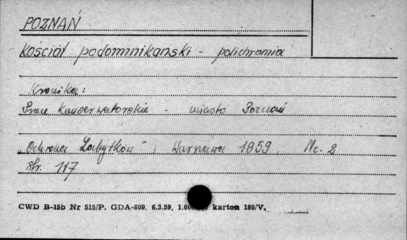 POZNAŃ
Kościół podomnikański - polichromia
Kronika:
Prace Konserwatorskie - miasto Poznań
"Ochrona Zabytków", Warszawa 1959 Nr. 2
str. 117
CWD B-15b Nr 515/P. GDA-809. 6.3.59. karton 180/V.